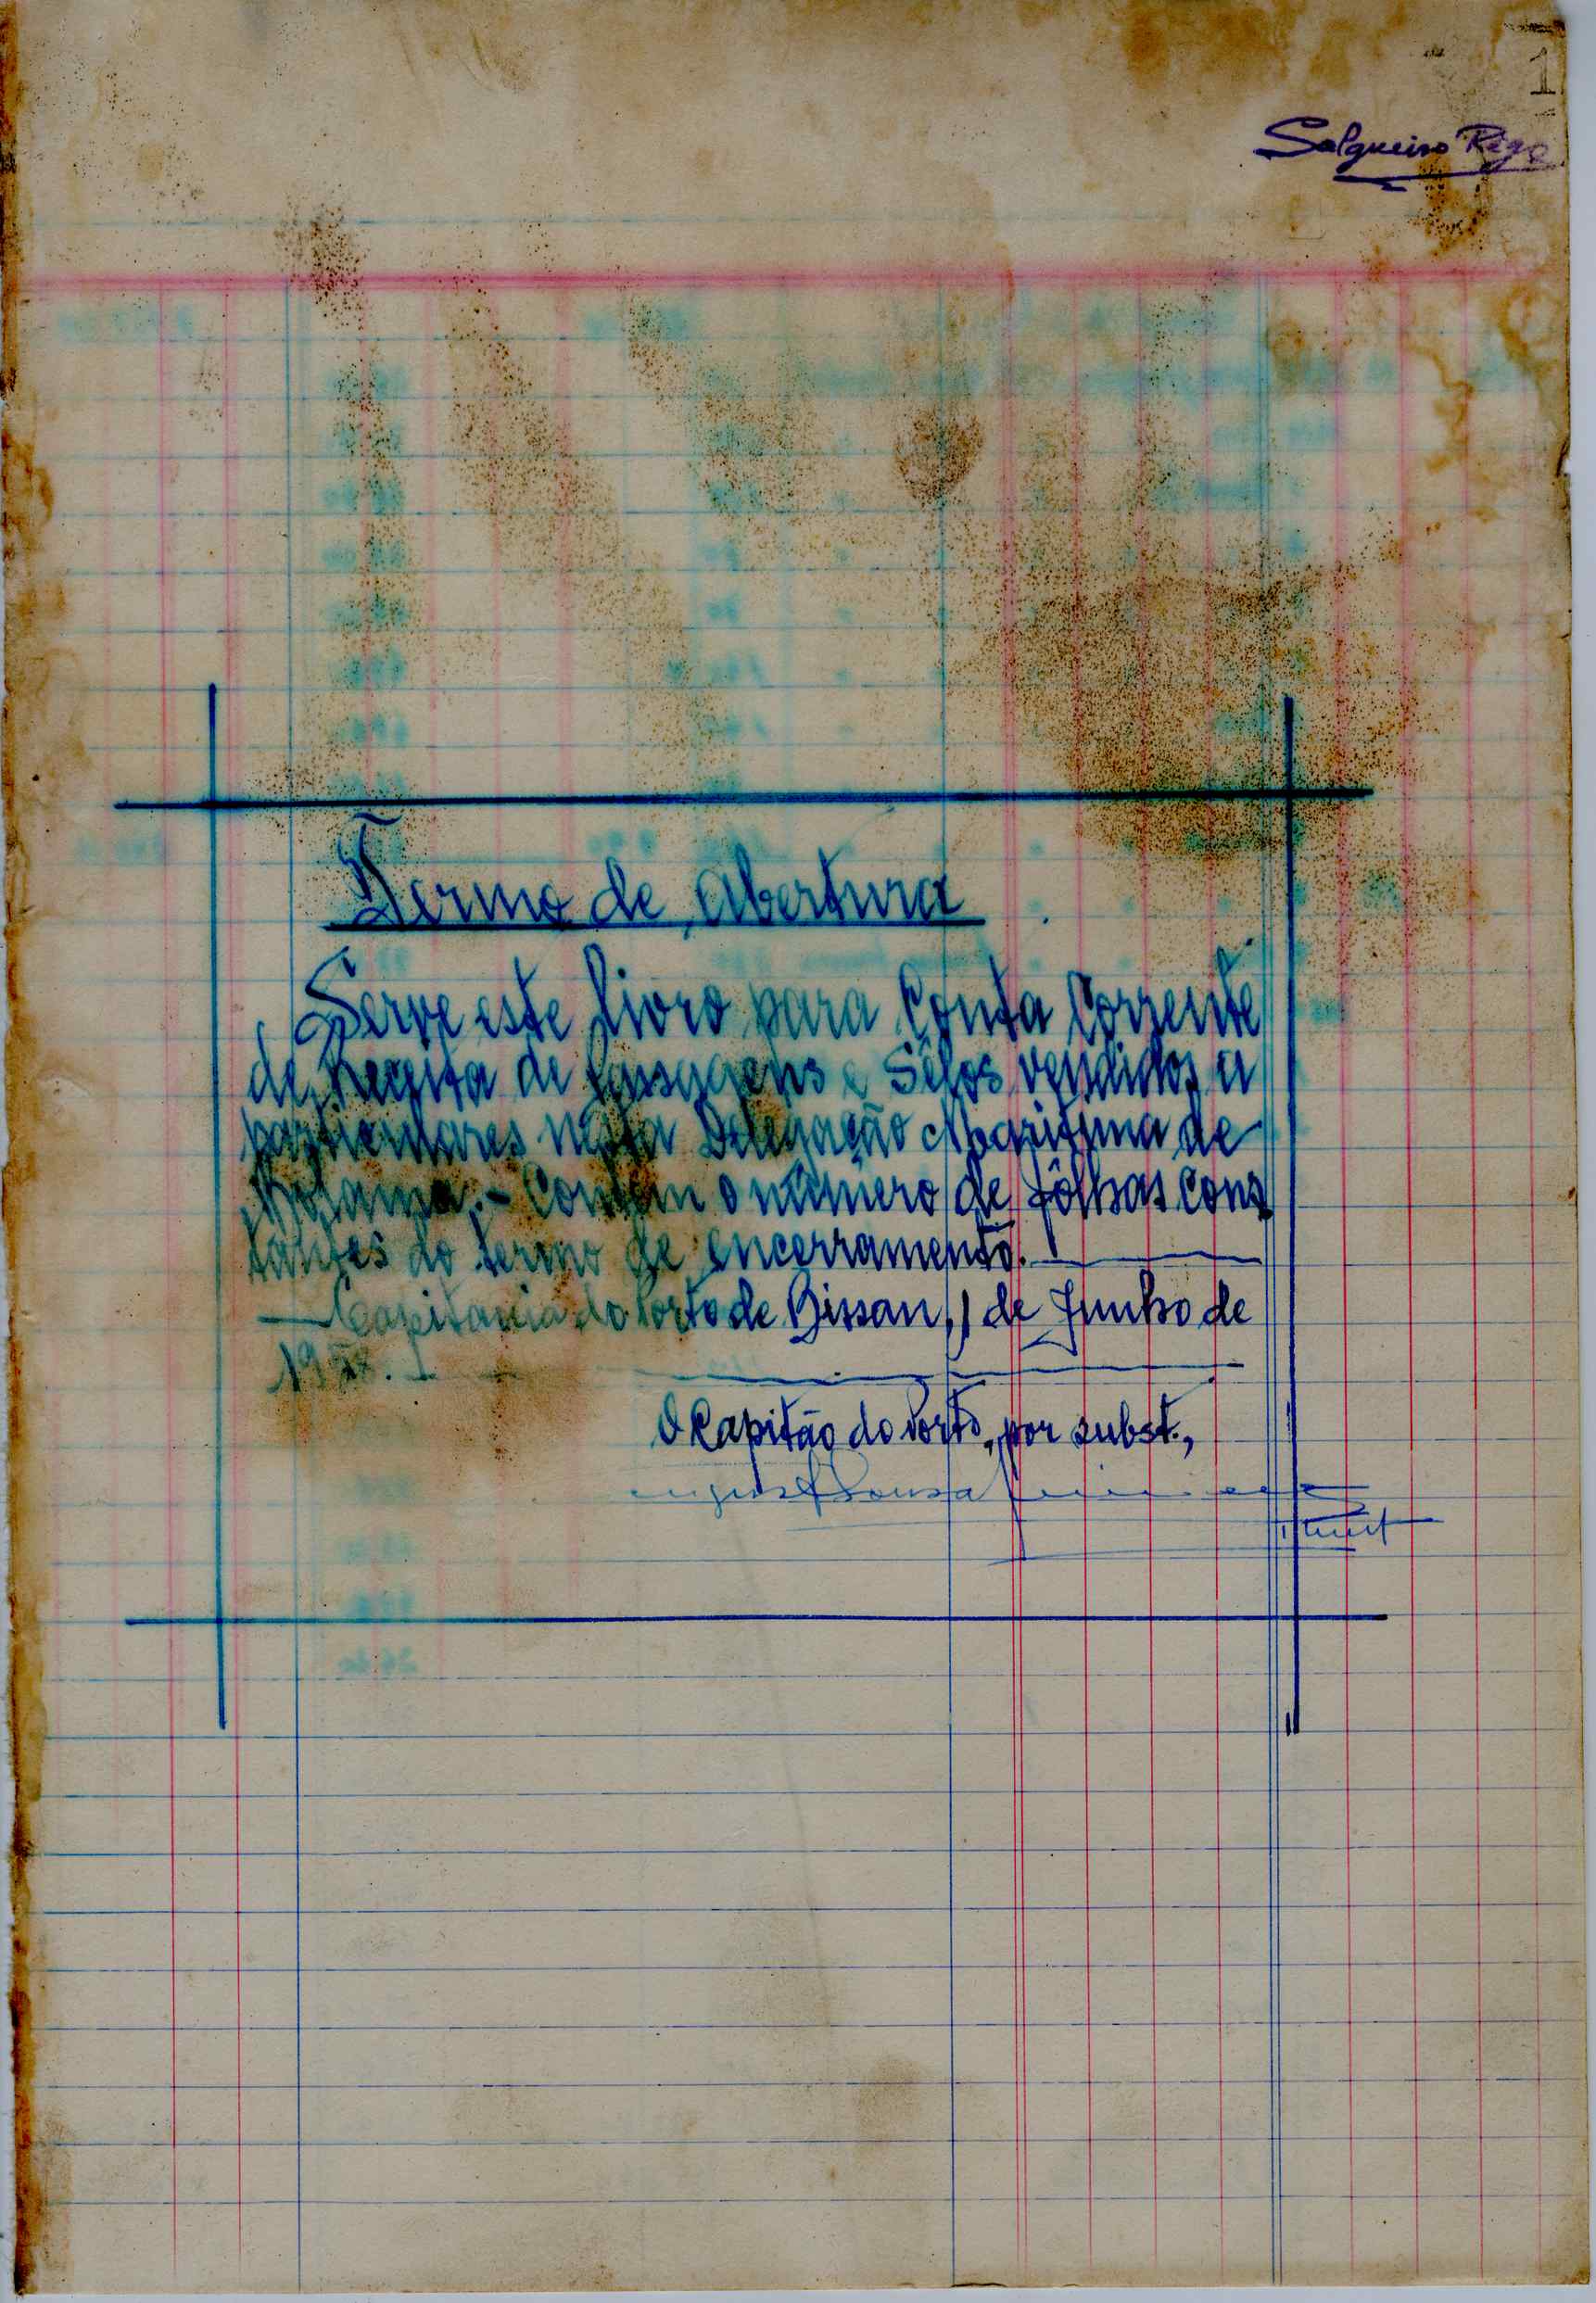 1
Salgueiro Rêgo
Termo de abertura
Serve este livro para Conta Corrente
de Receita de Passagens e Sêlos vendidos a
particulares nesta Delegação Maritima de
Bolama. - Contém o número de fôlhas cons
tantes do termo de encerramento.
Capitania do Porto de Bissau, 1 de Junho de
O Capitão do Porto, por subst.,
Sousa